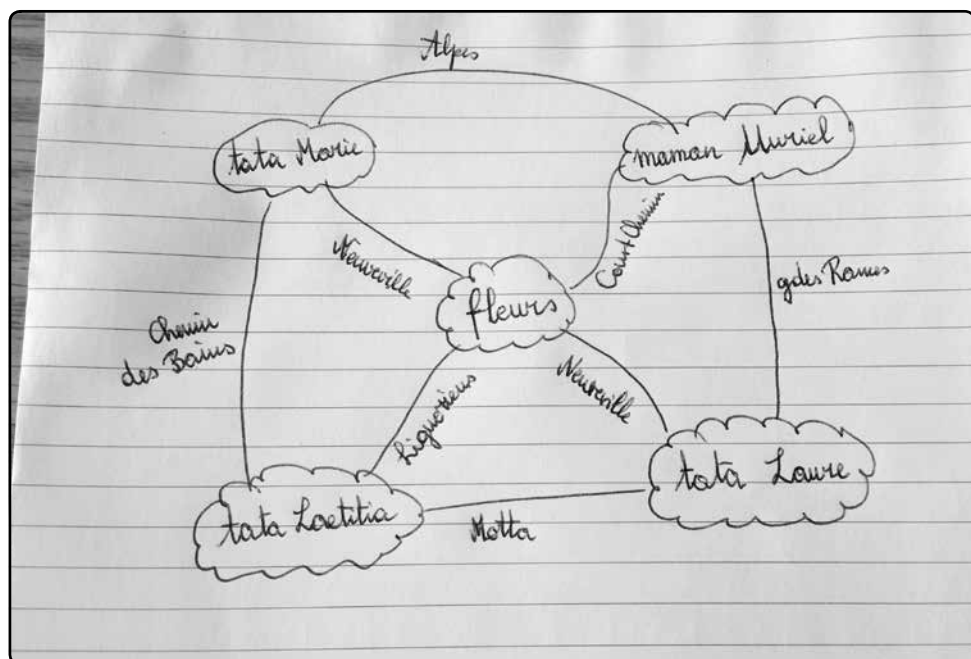 Alpes
tata Marie
maman Muriel
Neuveville
Court Chemin
fleurs
gdes Rames
Chemin
des Bains
Liguoriens
Neuveville
tata Laetitia
tata Laure
Motta